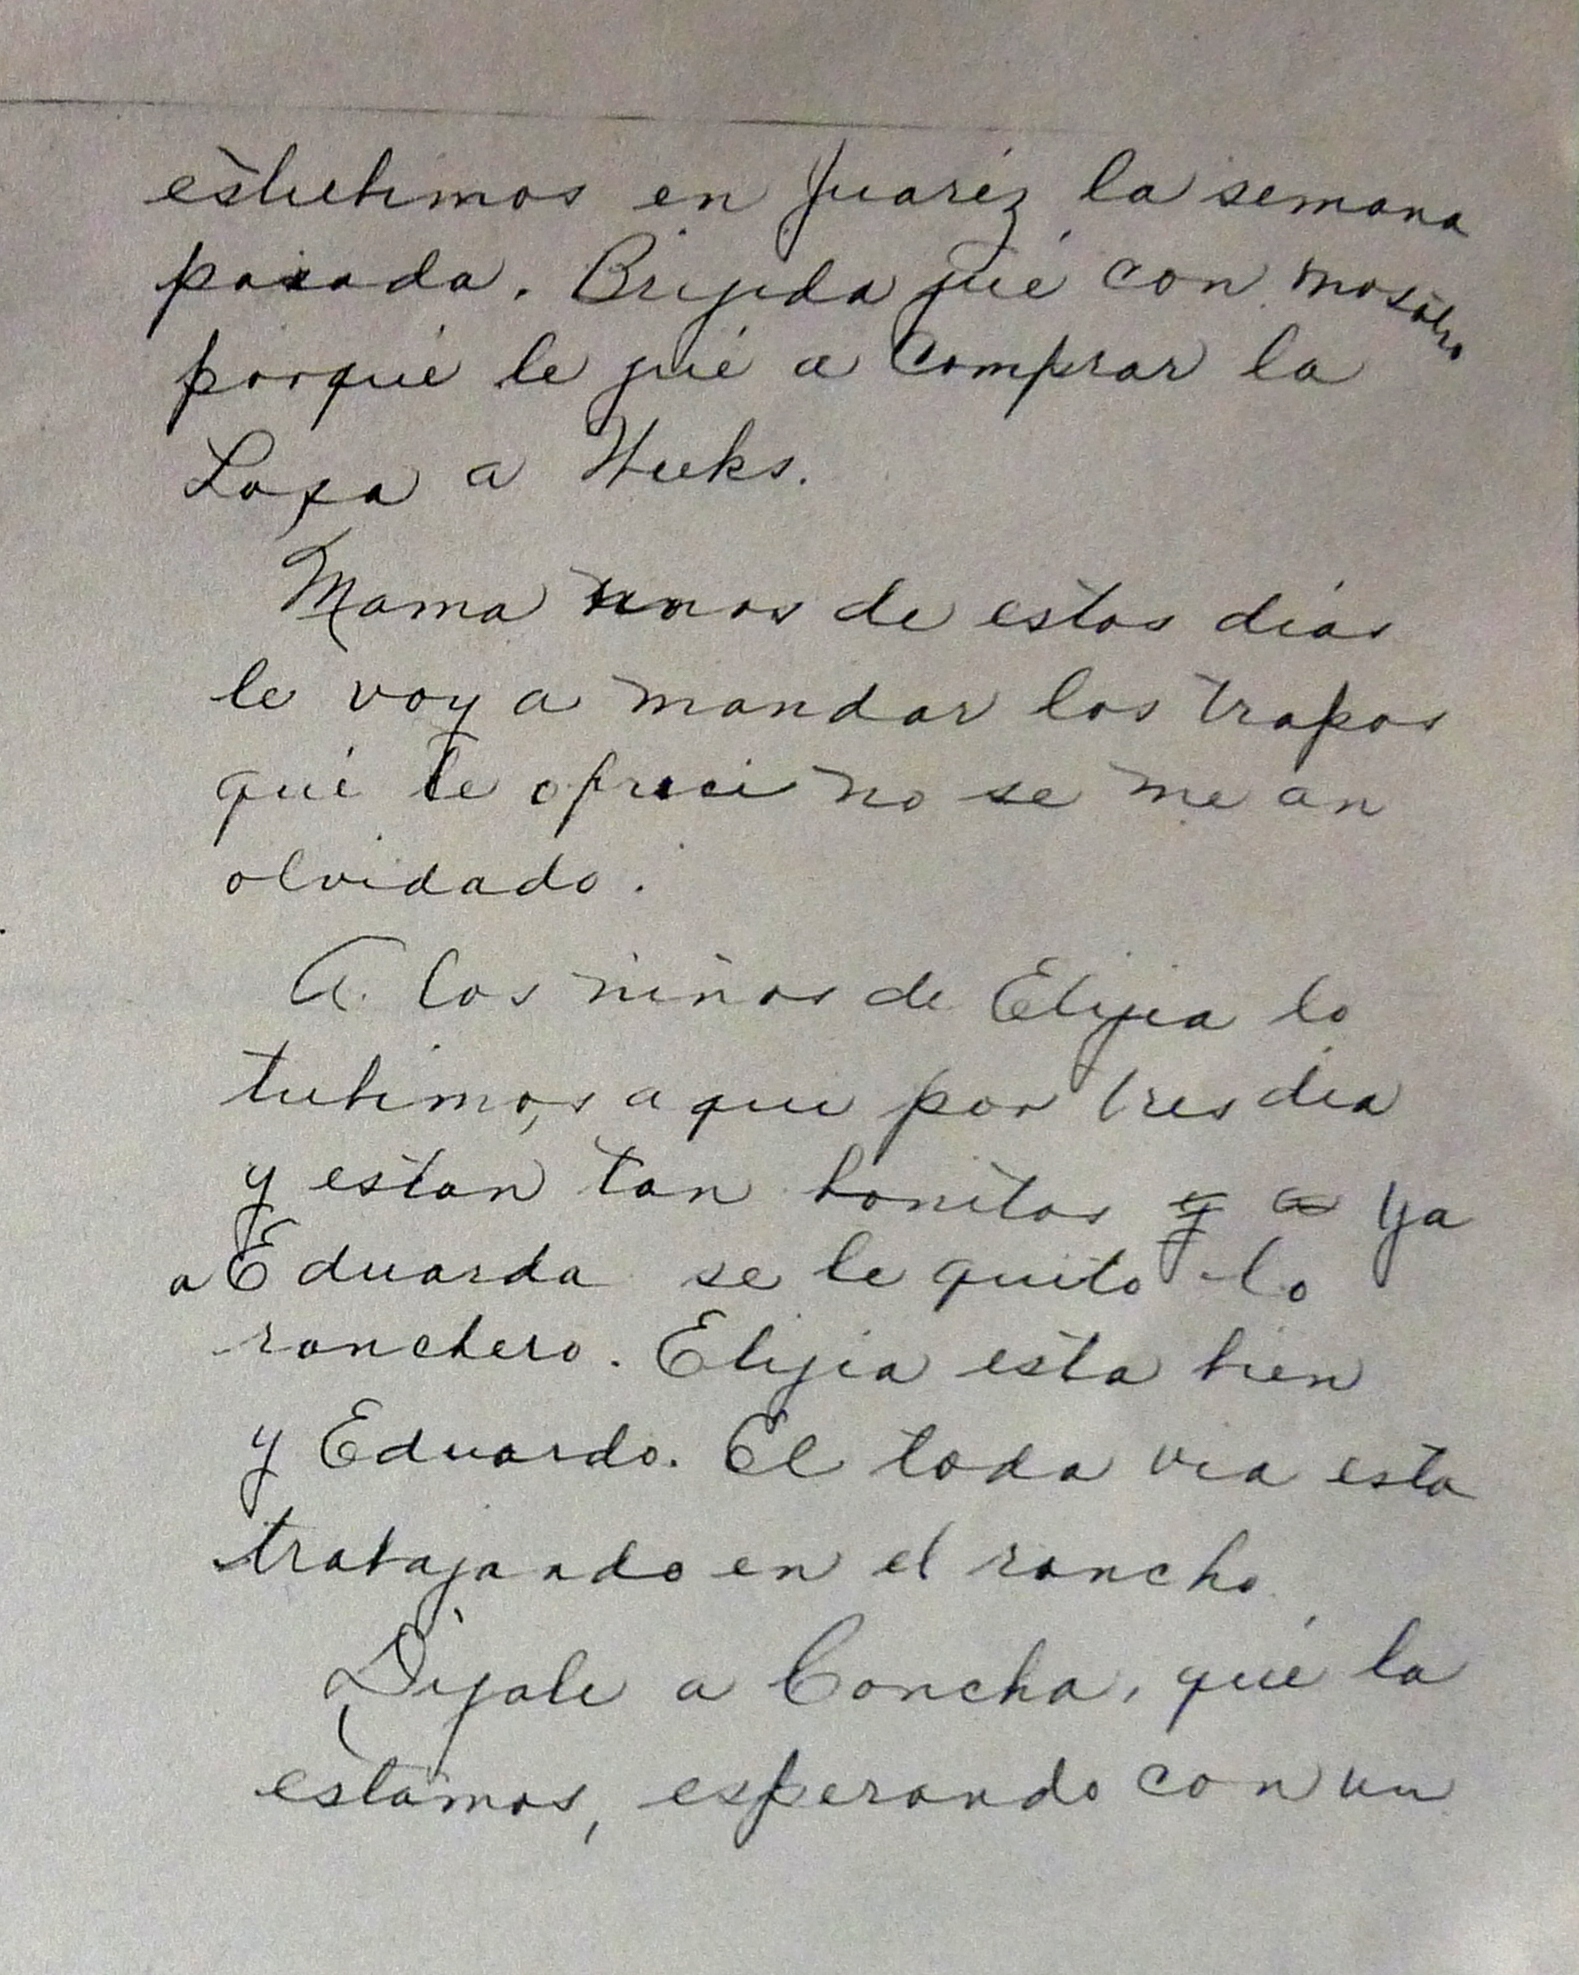 estubimos en Juaréz la semana
pasada. Brijida jué con mosotro
porqué le jué a comprar la
Losa a Weeks.
Mama unos de estos dias
le voy a mandar los trapos
qué le ofreci no se me an
olvidado.
A los niños de Elijia lo
tubimos aqui por tres dia
y estan tan bonitos y a ya
a Eduarda se le quito lo
ranchero. Elijia esta bien
y Eduardo. El toda via esta
trabajando en el rancho
Dijale a Concha, qué la
estamos, esperando con un